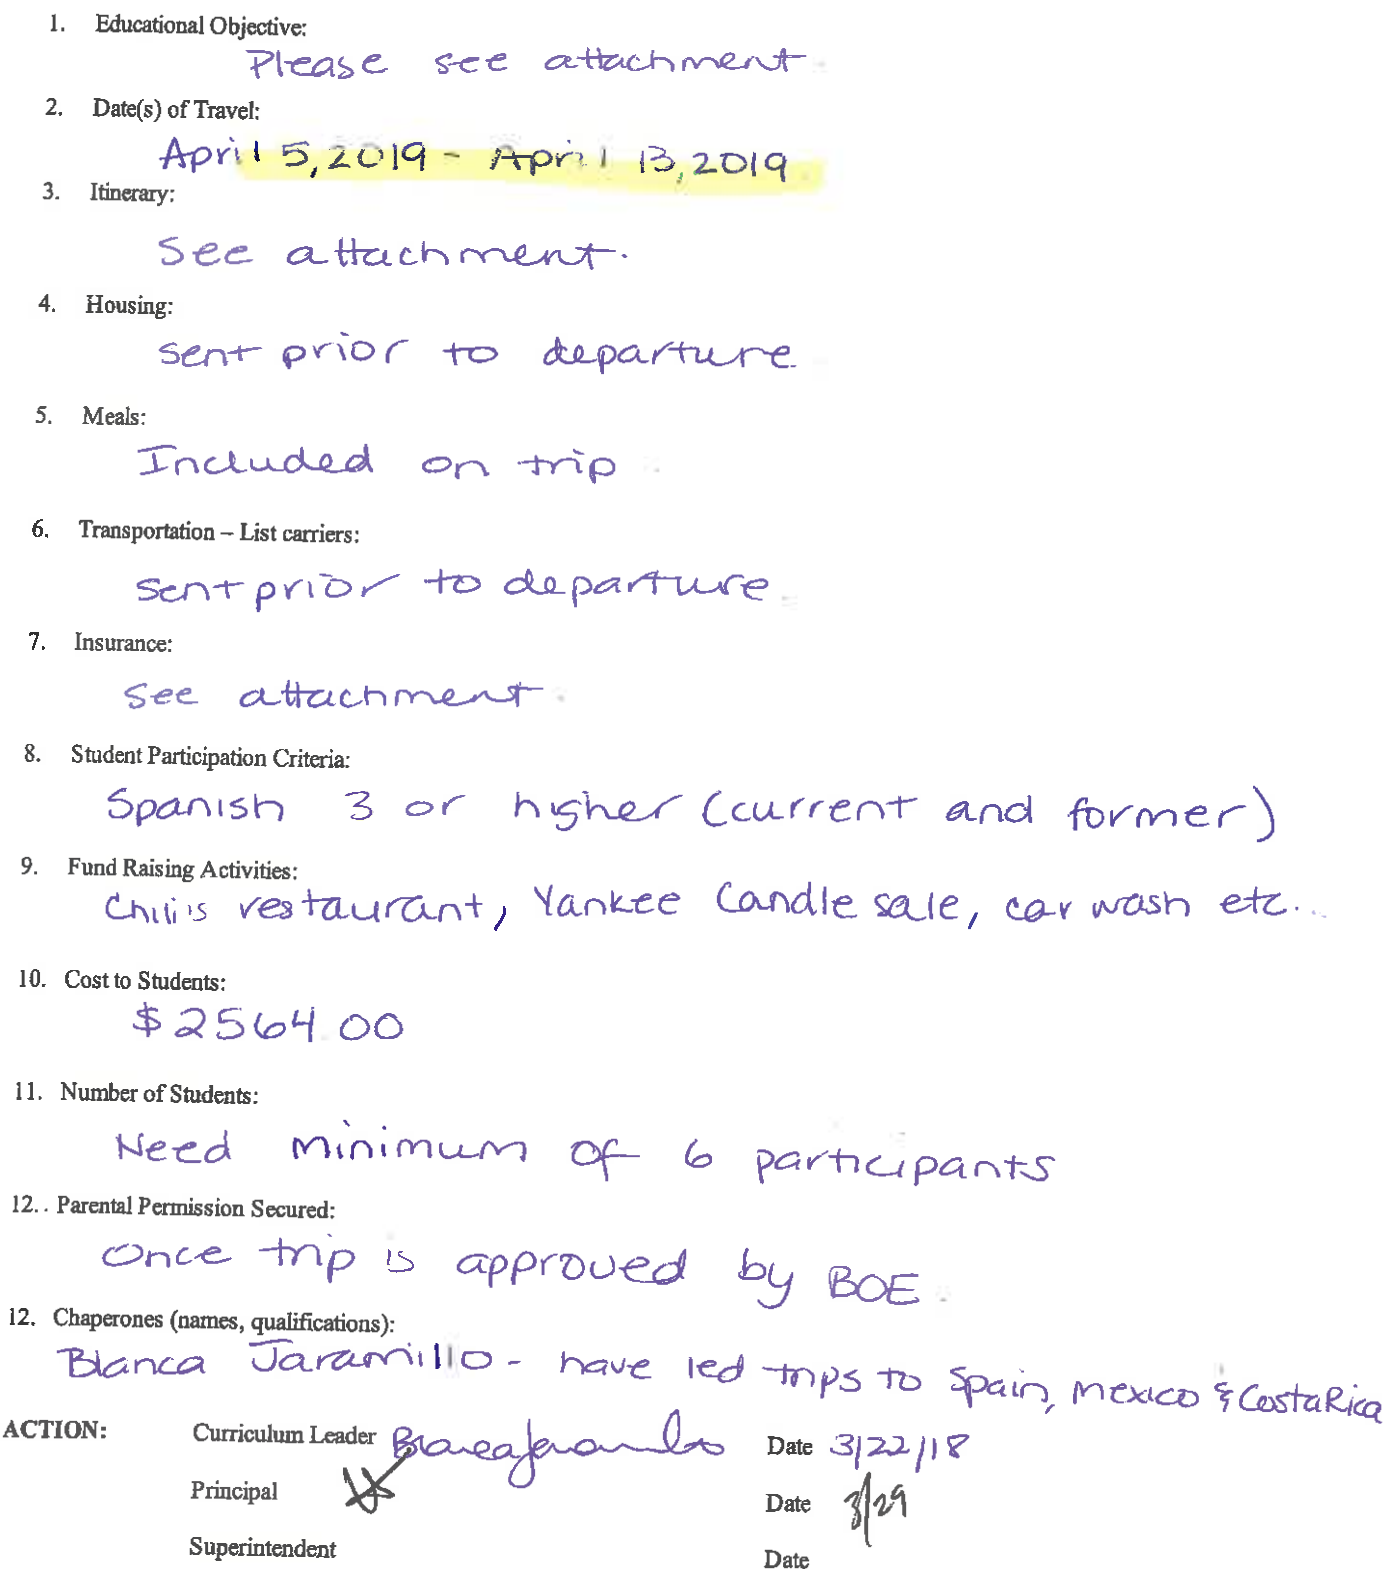 1. Educational Objective:
Please see attachment
2. Date(s) of Travel:
April 5, 2019 - April 13, 2019
3. Itinerary:
See attachment.
4. Housing:
sent prior to departure
5. Meals:
Included on trip
6. Transportation – List carriers:
sent prior to departure
7. Insurance:
see attachment
8. Student Participation Criteria:
Spanish 3 or higher (current and former)
9. Fund Raising Activities:
Chili's restaurant, Yankee Candle sale, car wash etc.
10. Cost to Students:
$2564.00
11. Number of Students:
Need minimum of 6 participants
12. . Parental Permission Secured:
Once trip is approved by BOE
12. Chaperones (names, qualifications):
Blanca Jaramillo - have led trips to Spain, Mexico & Costa Rica
ACTION: Curriculum Leader Blanca Jaramillo Date 3/22/18
Principal Date 3/29
Superintendent Date